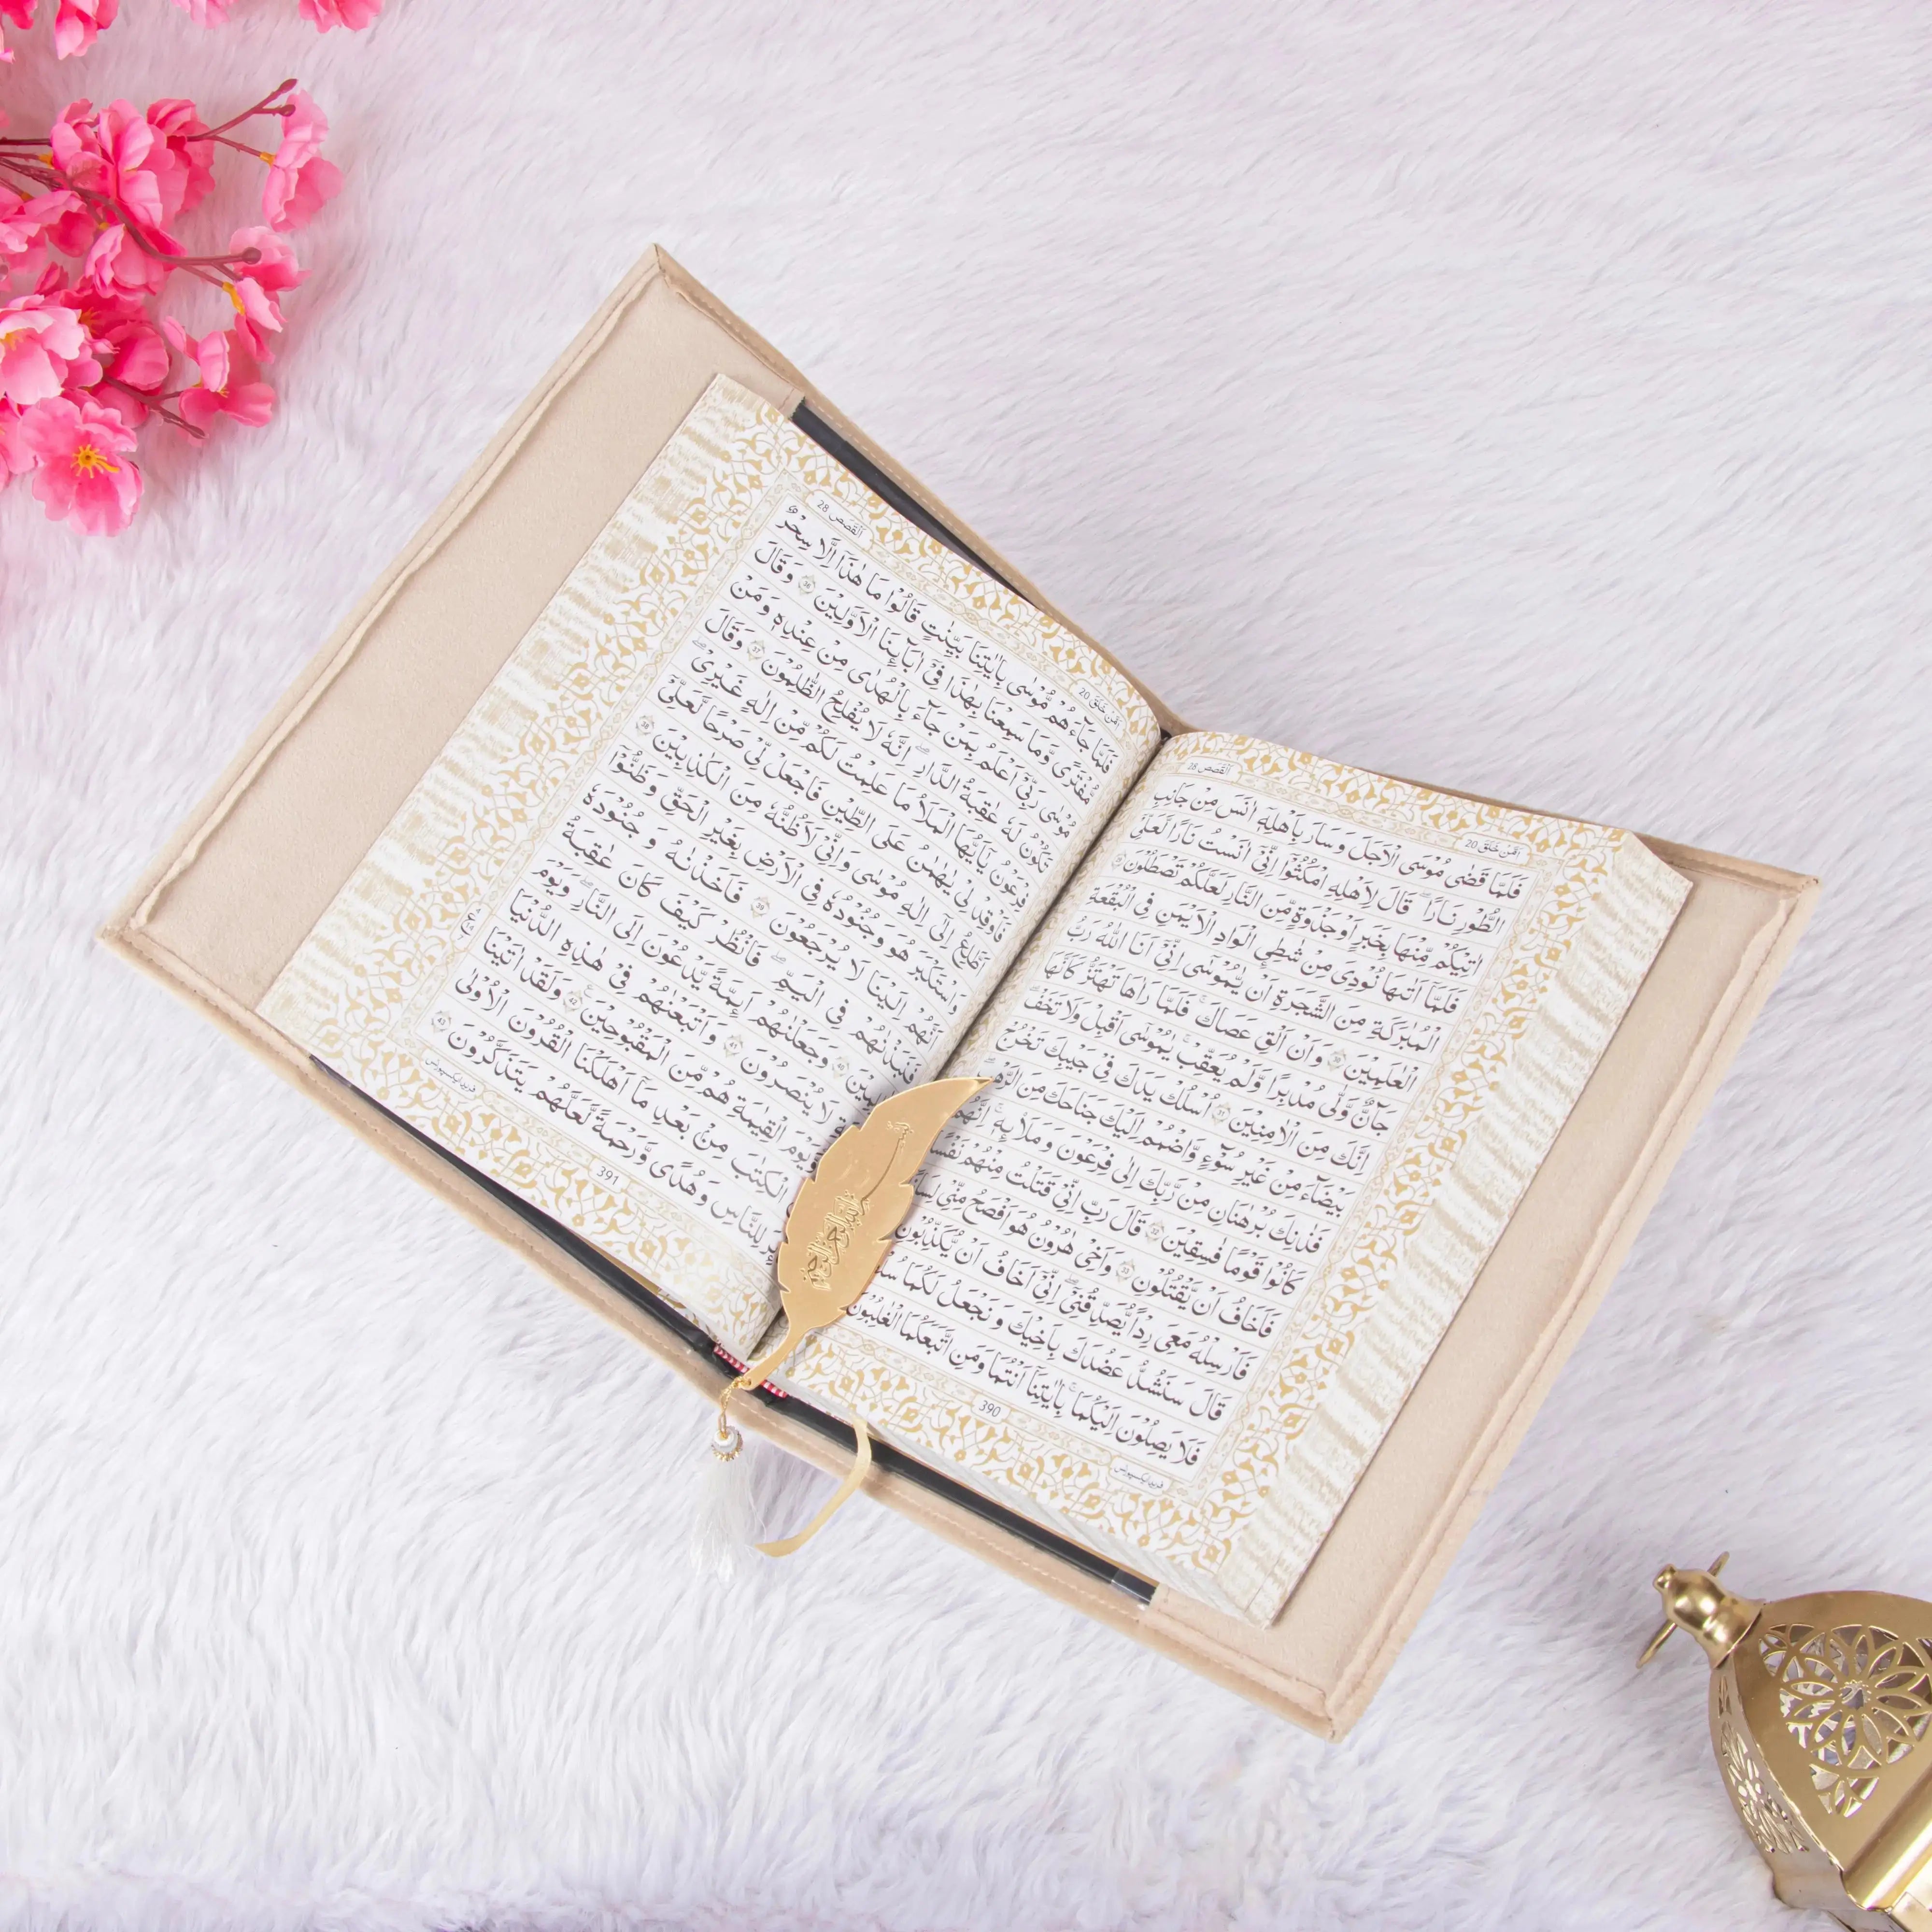 اَلْقَصَص 28
اَمَّنْ خَلَقَ 20
فَلَمَّا قَضٰى مُوْسَى الْاَجَلَ وَسَارَ بِاَهْلِهٖۤ اٰنَسَ مِنْ جَانِبِ
الطُّوْرِ نَارًا ۚ قَالَ لِاَهْلِهِ امْكُثُوْۤا اِنِّيْۤ اٰنَسْتُ نَارًا لَّعَلِّيْۤ
اٰتِيْكُمْ مِّنْهَا بِخَبَرٍ اَوْ جَذْوَةٍ مِّنَ النَّارِ لَعَلَّكُمْ تَصْطَلُوْنَ 29
فَلَمَّاۤ اَتٰىهَا نُوْدِيَ مِنْ شَاطِئِ الْوَادِ الْاَيْمَنِ فِي الْبُقْعَةِ
الْمُبٰرَكَةِ مِنَ الشَّجَرَةِ اَنْ يّٰمُوْسٰۤى اِنِّيْۤ اَنَا اللّٰهُ رَبُّ
الْعٰلَمِيْنَ 30 وَاَنْ اَلْقِ عَصَاكَ ؕ فَلَمَّا رَاٰهَا تَهْتَزُّ كَاَنَّهَا
جَآنٌّ وَّلّٰى مُدْبِرًا وَّلَمْ يُعَقِّبْ ؕ يٰمُوْسٰۤى اَقْبِلْ وَلَا تَخَفْ
اِنَّكَ مِنَ الْاٰمِنِيْنَ 31 اُسْلُكْ يَدَكَ فِيْ جَيْبِكَ تَخْرُجْ
بَيْضَآءَ مِنْ غَيْرِ سُوْٓءٍ وَّاضْمُمْ اِلَيْكَ جَنَاحَكَ مِنَ
فَذٰنِكَ بُرْهَانٰنِ مِنْ رَّبِّكَ اِلٰى فِرْعَوْنَ وَمَلَا۟ئِهٖ ؕ اِنَّهُمْ
كَانُوْا قَوْمًا فٰسِقِيْنَ 32 قَالَ رَبِّ اِنِّيْ قَتَلْتُ مِنْهُمْ نَفْسًا
فَاَخَافُ اَنْ يَّقْتُلُوْنِ 33 وَاَخِيْ هٰرُوْنُ هُوَ اَفْصَحُ مِنِّيْ
فَاَرْسِلْهُ مَعِيَ رِدْاً يُّصَدِّقُنِيْۤ ؗ اِنِّيْۤ اَخَافُ اَنْ يُّكَذِّبُوْنِ
قَالَ سَنَشُدُّ عَضُدَكَ بِاَخِيْكَ وَنَجْعَلُ لَكُمَا
فَلَا يَصِلُوْنَ اِلَيْكُمَا ۚ بِاٰيٰتِنَاۤ ۚ اَنْتُمَا وَمَنِ اتَّبَعَكُمَا الْغٰلِبُوْنَ
390
اَلْقَصَص 28
اَمَّنْ خَلَقَ 20
فَلَمَّا جَآءَهُمْ مُّوْسٰى بِاٰيٰتِنَا بَيِّنٰتٍ قَالُوْا مَا هٰذَاۤ اِلَّا سِحْرٌ
مُّفْتَرًى وَّمَا سَمِعْنَا بِهٰذَا فِيْۤ اٰبَآئِنَا الْاَوَّلِيْنَ 36 وَقَالَ
مُوْسٰى رَبِّيْۤ اَعْلَمُ بِمَنْ جَآءَ بِالْهُدٰى مِنْ عِنْدِهٖ وَمَنْ
تَكُوْنُ لَهٗ عَاقِبَةُ الدَّارِ ؕ اِنَّهٗ لَا يُفْلِحُ الظّٰلِمُوْنَ 37 وَقَالَ
فِرْعَوْنُ يٰۤاَيُّهَا الْمَلَاُ مَا عَلِمْتُ لَكُمْ مِّنْ اِلٰهٍ غَيْرِيْ ۚ
فَاَوْقِدْ لِيْ يٰهَامٰنُ عَلَى الطِّيْنِ فَاجْعَلْ لِّيْ صَرْحًا لَّعَلِّيْۤ
اَطَّلِعُ اِلٰۤى اِلٰهِ مُوْسٰى ۙ وَاِنِّيْ لَاَظُنُّهٗ مِنَ الْكٰذِبِيْنَ 38
وَاسْتَكْبَرَ هُوَ وَجُنُوْدُهٗ فِي الْاَرْضِ بِغَيْرِ الْحَقِّ وَظَنُّوْۤا
اَنَّهُمْ اِلَيْنَا لَا يُرْجَعُوْنَ 39 فَاَخَذْنٰهُ وَجُنُوْدَهٗ
فَنَبَذْنٰهُمْ فِي الْيَمِّ ۚ فَانْظُرْ كَيْفَ كَانَ عَاقِبَةُ
40 وَجَعَلْنٰهُمْ اَئِمَّةً يَّدْعُوْنَ اِلَى النَّارِ ۚ وَيَوْمَ
لَا يُنْصَرُوْنَ 41 وَاَتْبَعْنٰهُمْ فِيْ هٰذِهِ الدُّنْيَا
وَيَوْمَ الْقِيٰمَةِ هُمْ مِّنَ الْمَقْبُوْحِيْنَ 42 وَلَقَدْ اٰتَيْنَا
الْكِتٰبَ مِنْۢ بَعْدِ مَاۤ اَهْلَكْنَا الْقُرُوْنَ الْاُوْلٰى
لِلنَّاسِ وَهُدًى وَّرَحْمَةً لَّعَلَّهُمْ يَتَذَكَّرُوْنَ 43
391
بسم الله الرحمن الرحيم